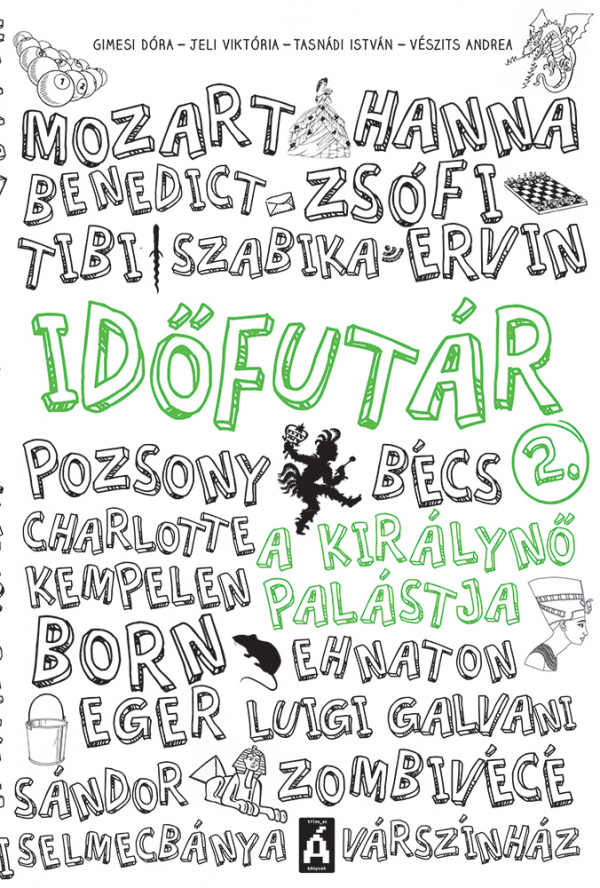 GIMESI DÓRA – JELI VIKTÓRIA – TASNÁDI ISTVÁN – VÉSZITS ANDREA
MOZART HANNA
BENEDICT ZSÓFI
TIBI SZABIKA ERVIN
IDŐFUTÁR
POZSONY BÉCS 2.
CHARLOTTE A KIRÁLYNŐ
KEMPELEN PALÁSTJA
BORN EHNATON
EGER LUIGI GALVANI
SÁNDOR ZOMBIVÉCÉ
SELMECBÁNYA Á VÁRSZÍNHÁZ
könyvek